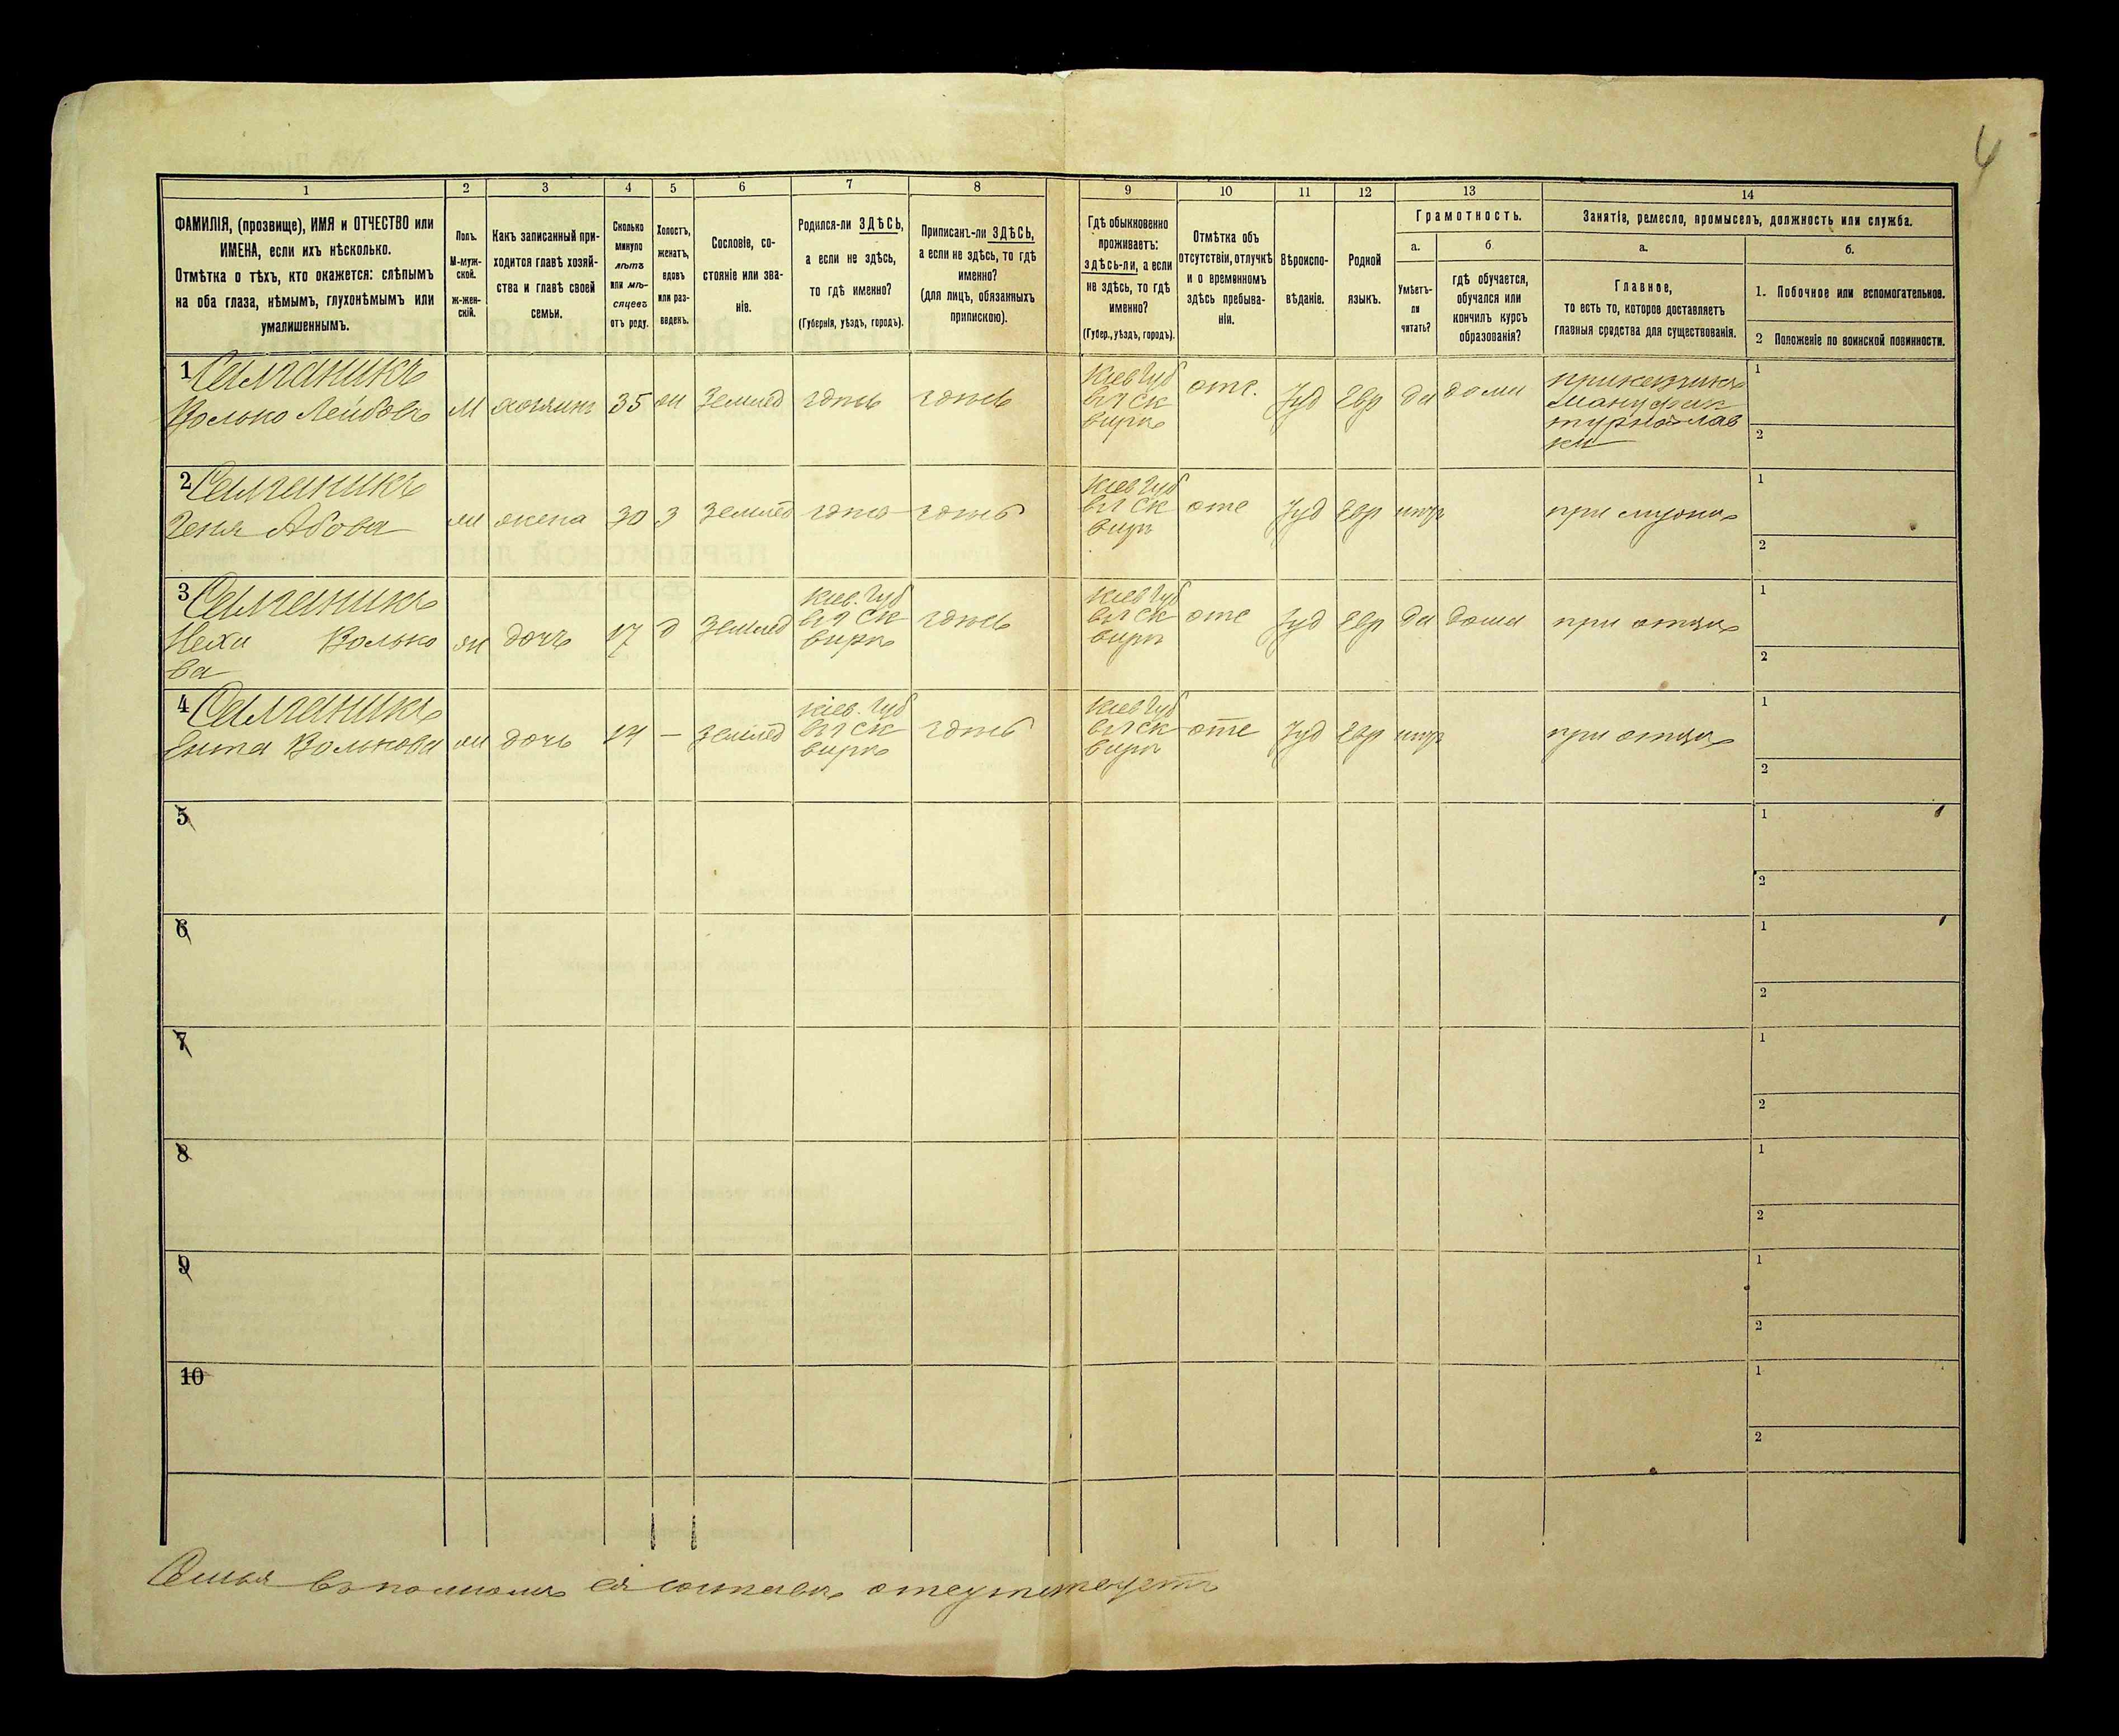 4
1 2 3 4 5 6 7 8 9 10 11 12 13 14
ФАМИЛІЯ, (прозвище), ИМЯ и ОТЧЕСТВО или
ИМЕНА, если ихъ нѣсколько.
Отмѣтка о тѣхъ, кто окажется: слѣпымъ
на оба глаза, нѣмымъ, глухонѣмымъ или
умалишеннымъ.
Полъ.
М-муж-
ской.
Ж-жен-
скій.
Какъ записанный при-
ходится главѣ хозяй-
ства и главѣ своей
семьи.
Сколько
минуло
лѣтъ
или мѣ-
сяцевъ
отъ роду.
Холостъ,
женатъ,
вдовъ
или раз-
веденъ.
Сословіе, со-
стояніе или зва-
ніе.
Родился-ли ЗДѢСЬ,
а если не здѣсь,
то гдѣ именно?
(Губернія, уѣздъ, городъ).
Приписанъ-ли ЗДѢСЬ,
а если не здѣсь, то гдѣ
именно?
(для лицъ, обязанныхъ
припискою).
Гдѣ обыкновенно
проживаетъ:
здѣсь-ли, а если
не здѣсь, то гдѣ
именно?
(Губер., уѣздъ, городъ).
Отмѣтка объ
отсутствіи, отлучкѣ
и о временномъ
здѣсь пребыва-
ніи.
Вѣроиспо-
вѣданіе.
Родной
языкъ.
Грамотность.
а.
Умѣетъ-
ли
читать?
б
гдѣ обучается,
обучался или
кончилъ курсъ
образованія?
Занятіе, ремесло, промыселъ, должность или служба.
а.
Главное,
то есть то, которое доставляетъ
главныя средства для существованія.
б.
1. Побочное или вспомогательное.
2 Положеніе по воинской повинности.
1
Волько Лейбовъ
М
хозяинъ
35
Землед
здѣсь
здѣсь
Кіев Губ
отс.
Іуд
Евр
да
дома
прикащикъ
мануфак
турной лав
ки
1
2
2
Абова
жена
30
З
Землед
здѣсь
здѣсь
Кіев Губ
отс
Іуд
Евр
при мужѣ
1
2
3
Неха Волько
ва
дочь
17
д
Землед
Кіев. Губ
здѣсь
Кіев Губ
отс
Іуд
Евр
да
дома
при отцѣ
1
2
4
Ента Волькова
дочь
14
—
Землед
Кіев. Губ
здѣсь
Кіев Губ
отс
Іуд
Евр
при отцѣ
1
2
5
1
2
6
1
2
7
1
2
8
1
2
9
1
2
10
1
2
Семья въ полномъ ея составѣ отсутствуетъ